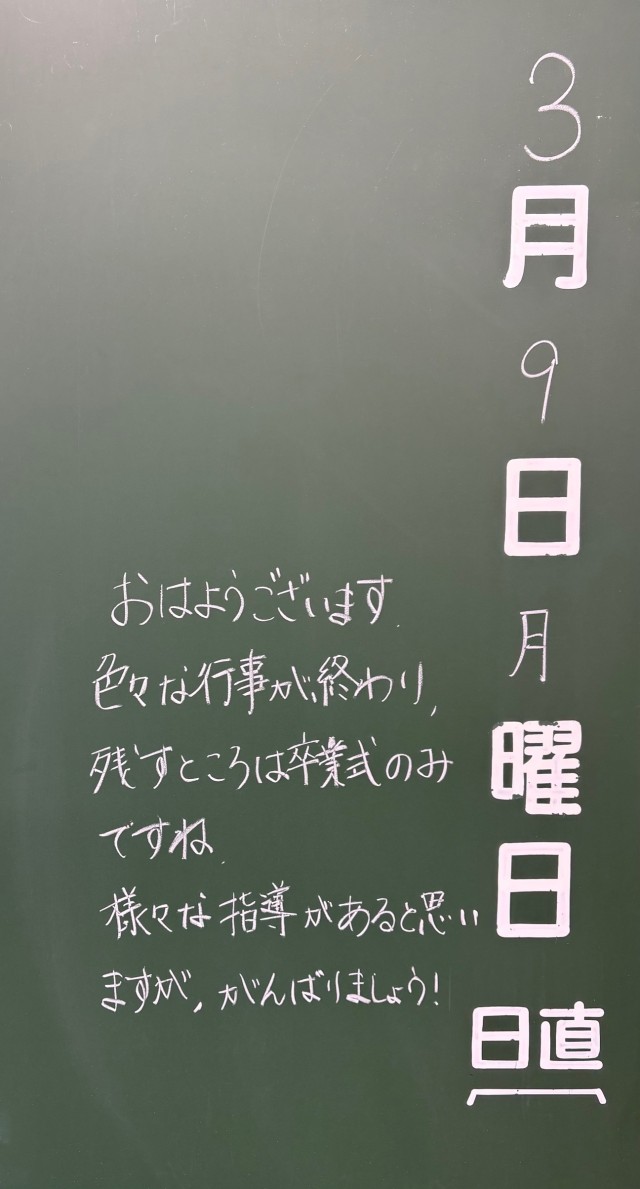 3月9日月曜日
日直
おはようございます.
色々な行事が終わり,
残すところは卒業式のみ
ですね.
様々な指導があると思い
ますが,がんばりましょう!